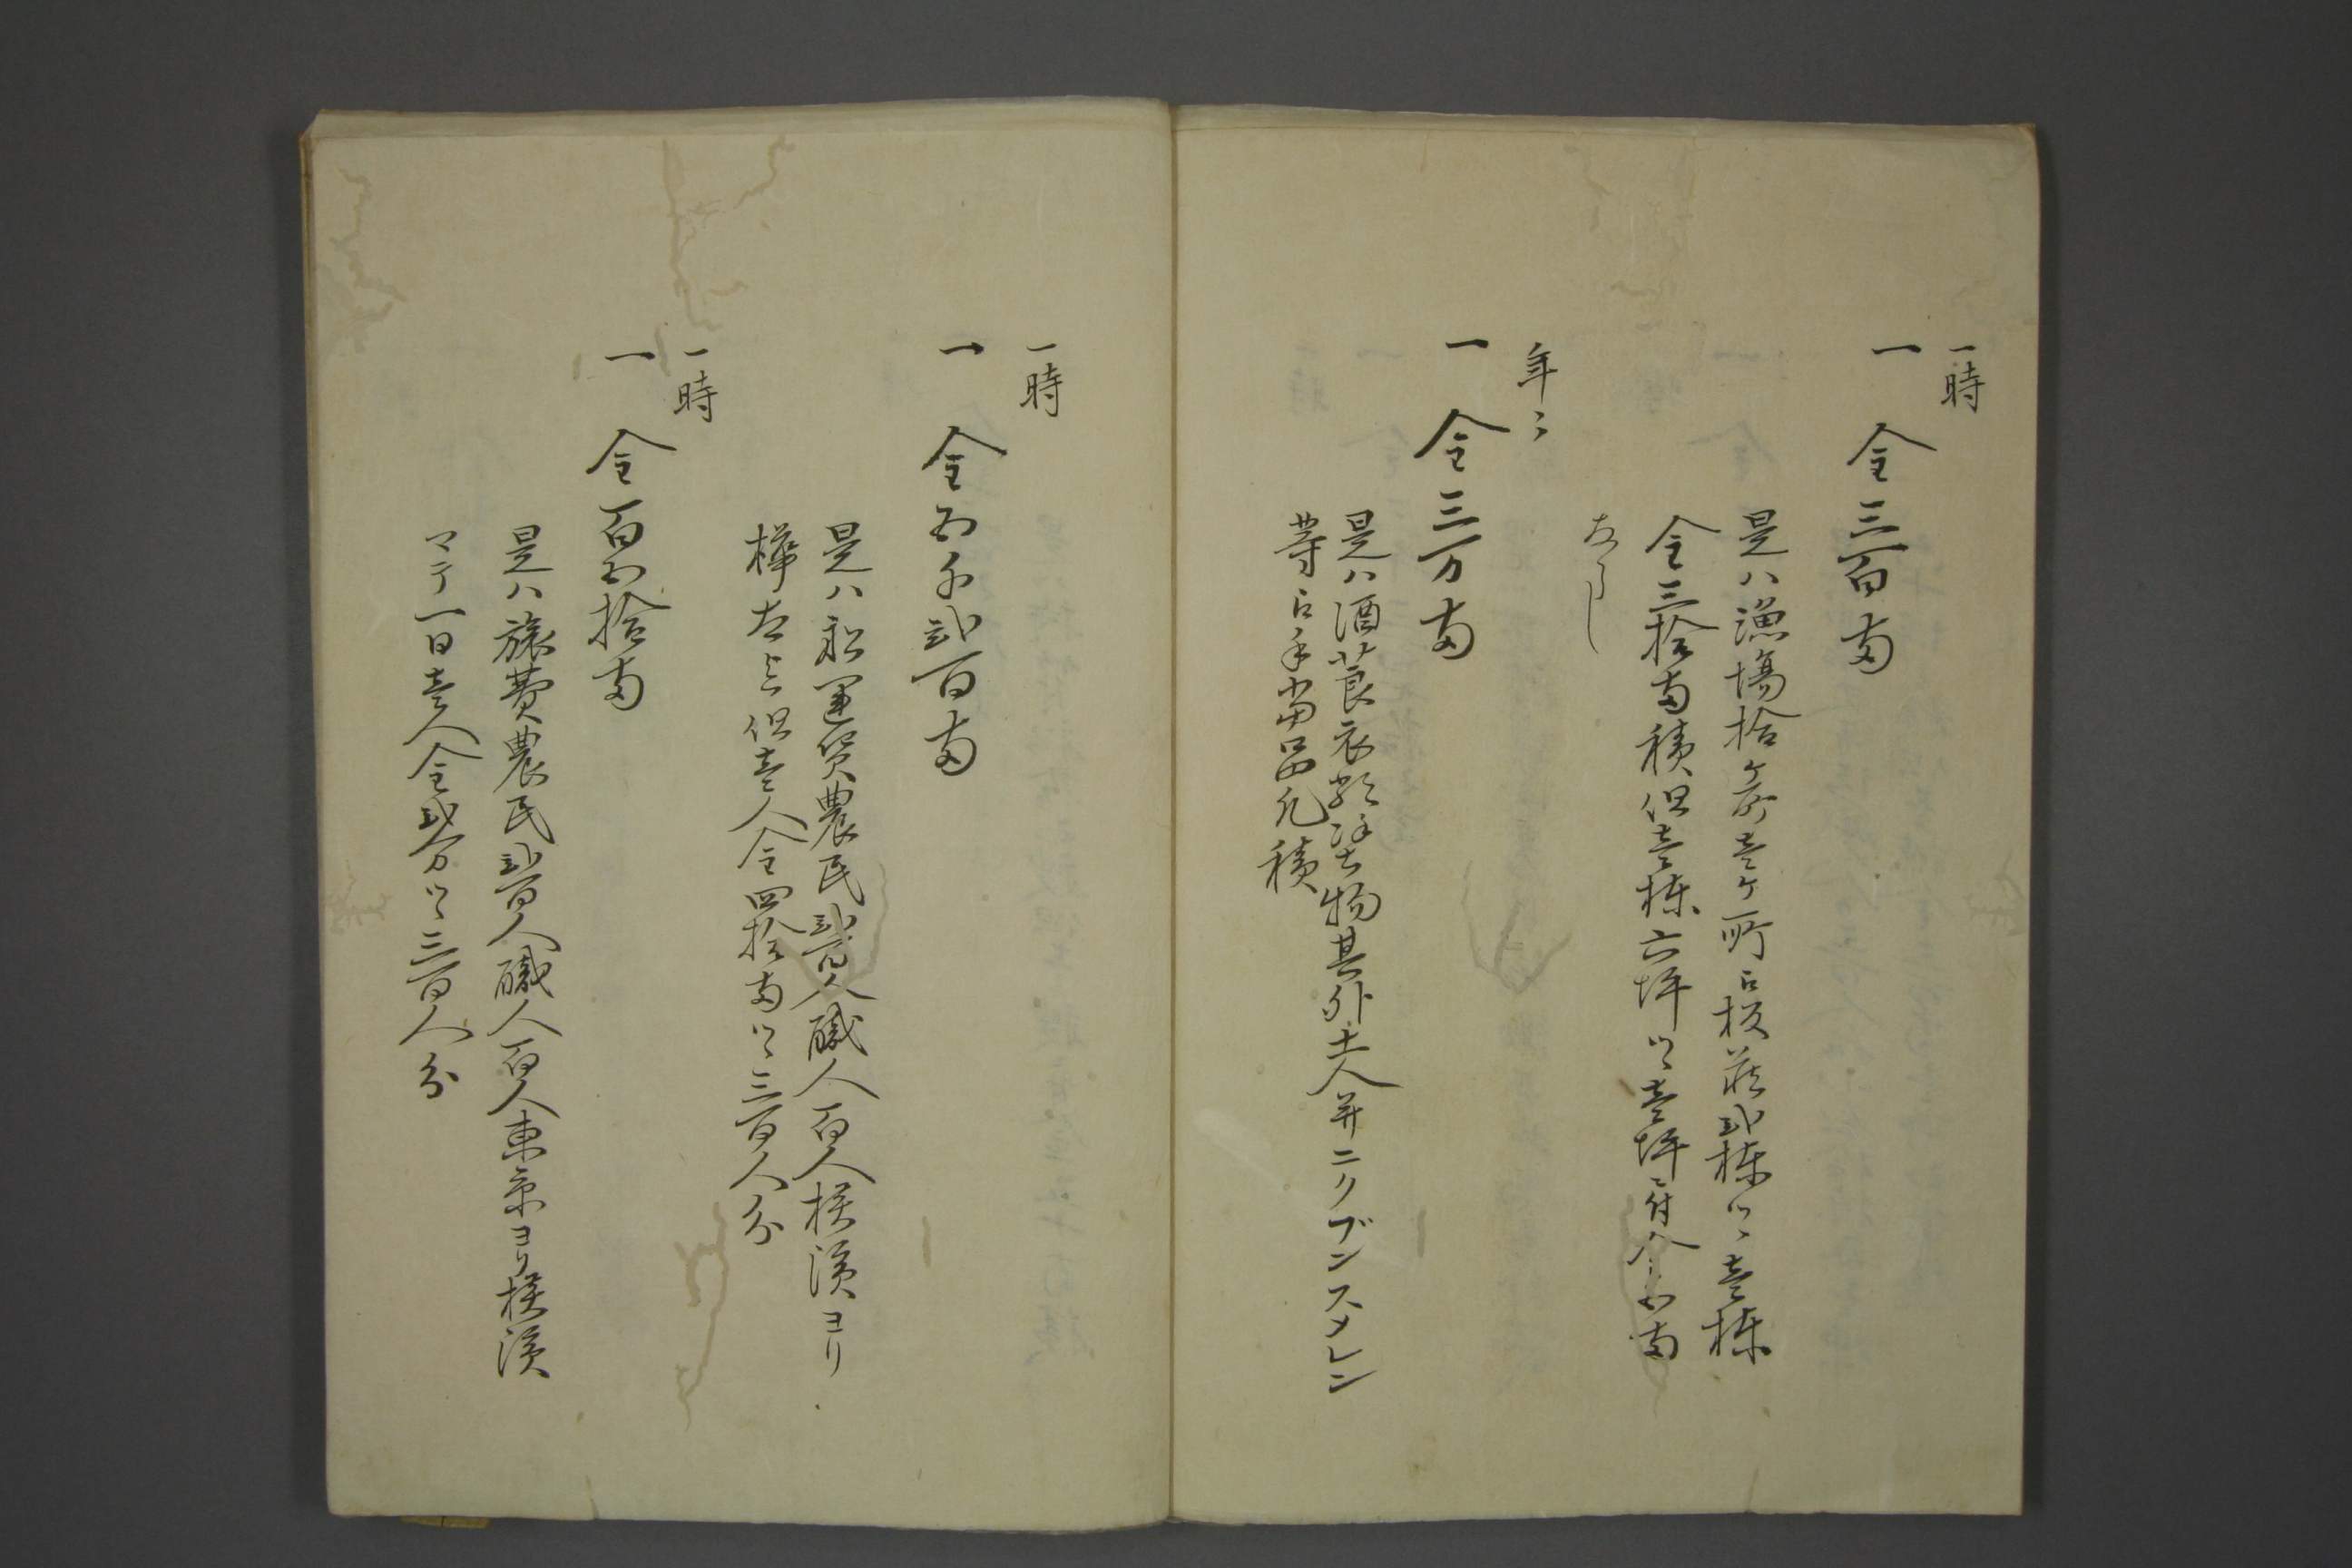 一時
一 金三百両
是ハ漁場拾ヶ所壱ヶ所江板蔵弐棟ツヽ壱棟
金三拾両積但壱棟六坪ツヽ壱坪ニ付金五両
ならし
年々
一 金三万両
是ハ酒莨衣類染物其外土人并ニクブンスメレン
等江手当品凡積
一時
一 金五千弐百両
是ハ船運賃農民弐百人職人百人横濱ヨリ
樺太迄但壱人金四拾両ツヽ三百人分
一時
一 金百五拾両
是ハ旅費農民弐百人職人百人東京ヨリ横濱
マテ一日壱人金弐分ツヽ三百人分